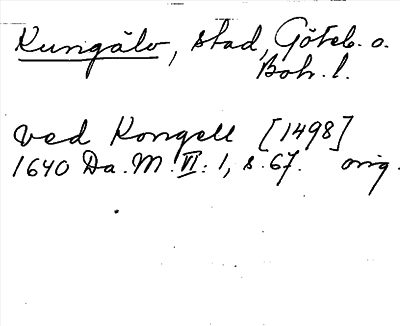 Kungälv, stad, Göteb. o.
Boh. l.
ved Kongell [1498]
1640 Da. M. VI: 1, s. 67. orig.